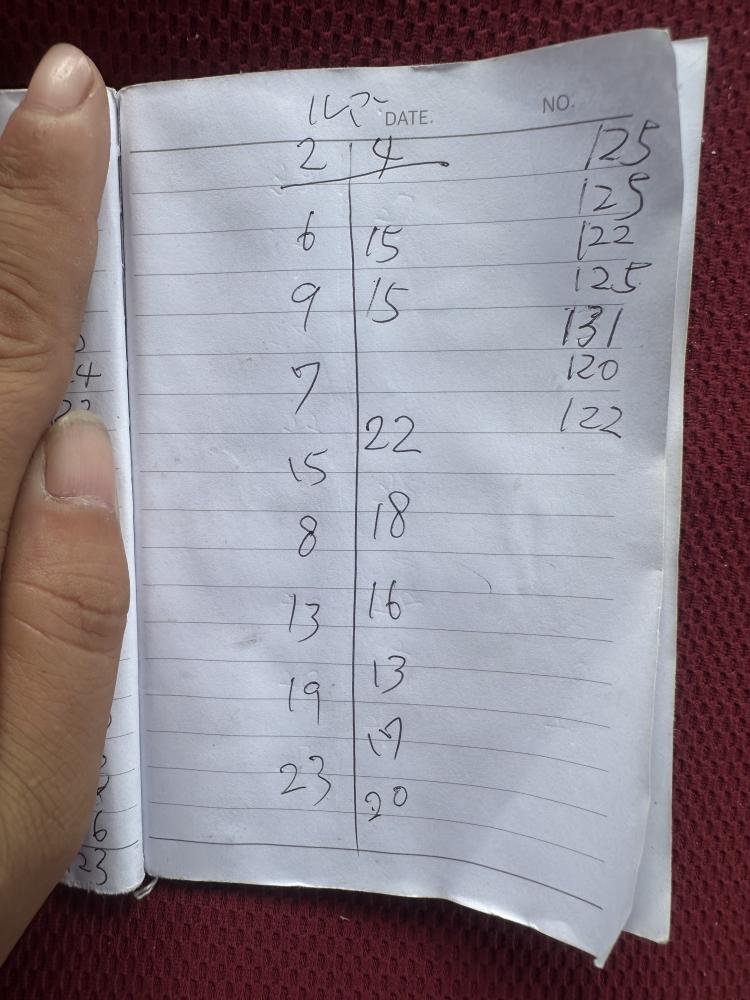 DATE. NO.
2 4 125
125
6 15 122
9 15 125
131
7 120
22 122
15
8 18
13 16
19 13
17
23 20
4
6
23